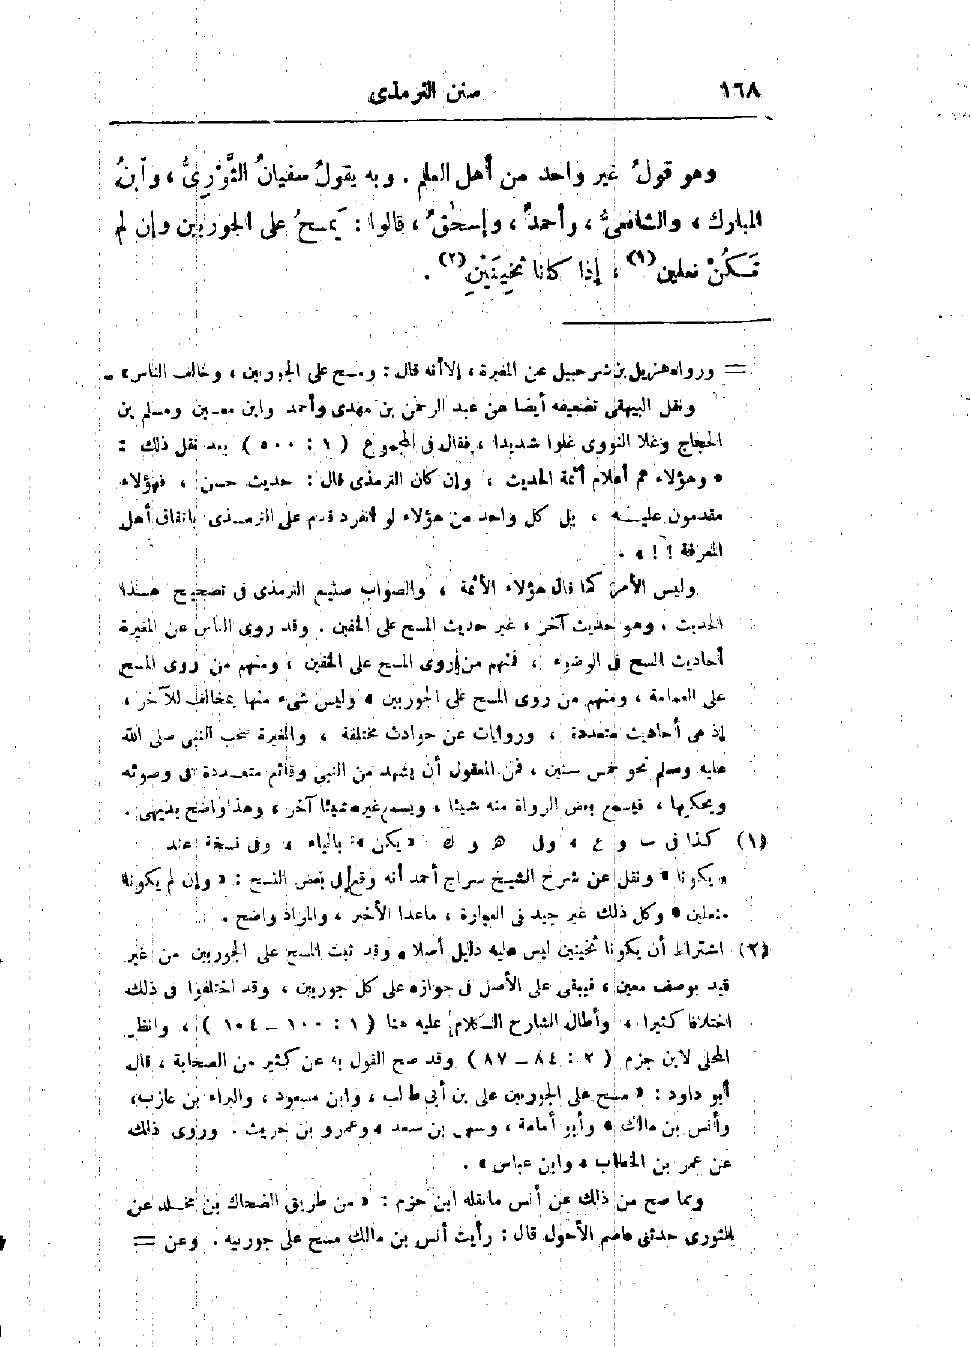 ١٦٨
سنن الترمذى
وهو قولُ غير واحد من أهل العلم . وبه يقولُ سفيانُ الثَّوْرِىُّ ، وابنُ
المبارك ، والشافعىُّ ، وأحمدُ ، وإسحٰقُ ، قالوا : يَمسحُ على الجوربين وإن لم
تَكُنْ نعلين (١) ، إذا كانا ثَخِينَيْنِ (٢) .
= ورواه هزيل بن شرحبيل عن المغيرة ، إلا أنه قال : ومسح على الجوربين ، وخالف الناس » .
ونقل البيهقى تضعيفه أيضا عن عبد الرحمن بن مهدى وأحمد وابن معين ومسلم بن
الحجاج وغلا النووى غلوا شديدا ، فقال فى المجموع ( ١ : ٥٠٠ ) بعد نقل ذلك :
« وهؤلاء هم أعلام أئمة الحديث ، وإن كان الترمذى قال : حديث حسن ، فهؤلاء
مقدمون عليه ، بل كل واحد من هؤلاء لو انفرد قدم على الترمذى باتفاق أهل
المعرفة ! ! » .
وليس الأمر كما قال هؤلاء الأئمة ، والصواب صنيع الترمذى فى تصحيح هذا
الحديث ، وهو حديث آخر ، غير حديث المسح على الخفين . وقد روى الناس عن المغيرة
أحاديث المسح فى الوضوء ، فمنهم من روى المسح على الخفين ، ومنهم من روى المسح
على العمامة ، ومنهم من روى المسح على الجوربين ، وليس شىء منها بمخالف للآخر ،
إذ هى أحاديث متعددة ، وروايات عن حوادث مختلفة ، والمغيرة صحب النبى صلى الله
عليه وسلم نحو خمس سنين ، فمن المعقول أن يشهد من النبى وقائع متعددة فى وضوئه
ويحكيها ، فيسمع بعض الرواة منه شيئا ، ويسمع غيره شيئا آخر ، وهذا واضح بديهى .
(١) كذا فى س و ع ، وفى ه و ك « يكن » بالياء ، وفى نسخة عند
« يكونا » ونقل عن شرح الشيخ سراج أحمد أنه وقع فى بعض النسخ : « وإن لم يكونا
منعلين » وكل ذلك غير جيد فى العبارة ، ماعدا الأخير ، والمراد واضح .
(٢) اشتراط أن يكونا ثخينين ليس عليه دليل أصلا ، وقد ثبت المسح على الجوربين من غير
قيد بوصف معين ، فيبقى على الأصل فى جوازه على كل جوربين ، وقد اختلفوا فى ذلك
اختلافا كثيرا ، وأطال الشارح الكلام عليه هنا ( ١ : ١٠٠ - ١٠٤ ) ، وانظر
المحلى لابن حزم ( ٢ : ٨٤ - ٨٧ ) وقد صح القول به عن كثير من الصحابة ، قال
أبو داود : « مسح على الجوربين على بن أبى طالب ، وابن مسعود ، والبراء بن عازب ،
وأنس بن مالك ، وأبو أمامة ، وسهل بن سعد ، وعمرو بن حريث . وروى ذلك
عن عمر بن الخطاب ، وابن عباس » .
ومما صح من ذلك عن أنس مانقله ابن حزم : « من طريق الضحاك بن مخلد عن
الثورى حدثنى عاصم الأحول قال : رأيت أنس بن مالك مسح على جوربيه . وعن =